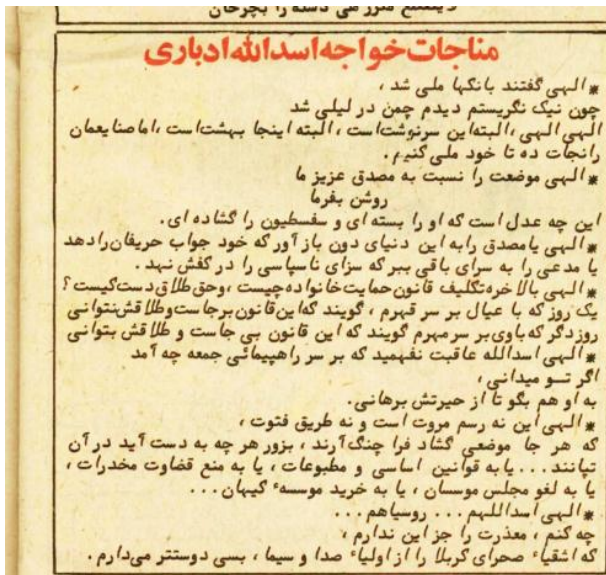 مناجات خواجه اسدالله ادباری
* الهی گفتند بانکها ملی شد ،
چون نیک نگریستم دیدم چمن در لیلی شد
الهی الهی ،البته این سرنوشت است ، البته اینجا بهشت است ،اما صنایعمان
را نجات ده تا خود ملی کنیم.
* الهی موضعت را نسبت به مصدق عزیز ما
روشن بفرما
این چه عدل است که او را بسته ای و سفسطیون را گشاده ای.
* الهی یا مصدق را به این دنیای دون باز آور که خود جواب حریفان را دهد
یا مدعی را به سرای باقی ببر که سزای ناسپاسی را در کفش نهد.
* الهی بالاخره تکلیف قانون حمایت خانواده چیست ،وحق طلاق دست کیست ؟
یک روز که با عیال بر سر قهرم ، گویند که این قانون برجاست و طلاقش نتوانی
روز دگر که با وی بر سر مهرم گویند که این قانون بی جاست و طلاقش بتوانی
* الهی اسدالله عاقبت نفهمید که بر سر راهپیمائی جمعه چه آمد
اگر تسو میدانی ،
به او هم بگو تا از حیرتش برهانی.
* الهی این نه رسم مروت است و نه طریق فتوت ،
که هر جا موضعی گشاد فرا چنگ آرند ، بزور هر چه به دست آید در آن
تپانند ... یا به قوانین اساسی و مطبوعات ، یا به منع قضاوت مخدرات ،
یا به لغو مجلس موسسان ، یا به خرید موسسهٔ کیهان ...
* الهی اسداللهم ... روسیاهم ...
چه کنم ، معذرت را جز این ندارم ،
که اشقیاء صحرای کربلا را از اولیاء صدا و سیما ، بسی دوستتر می‌دارم.